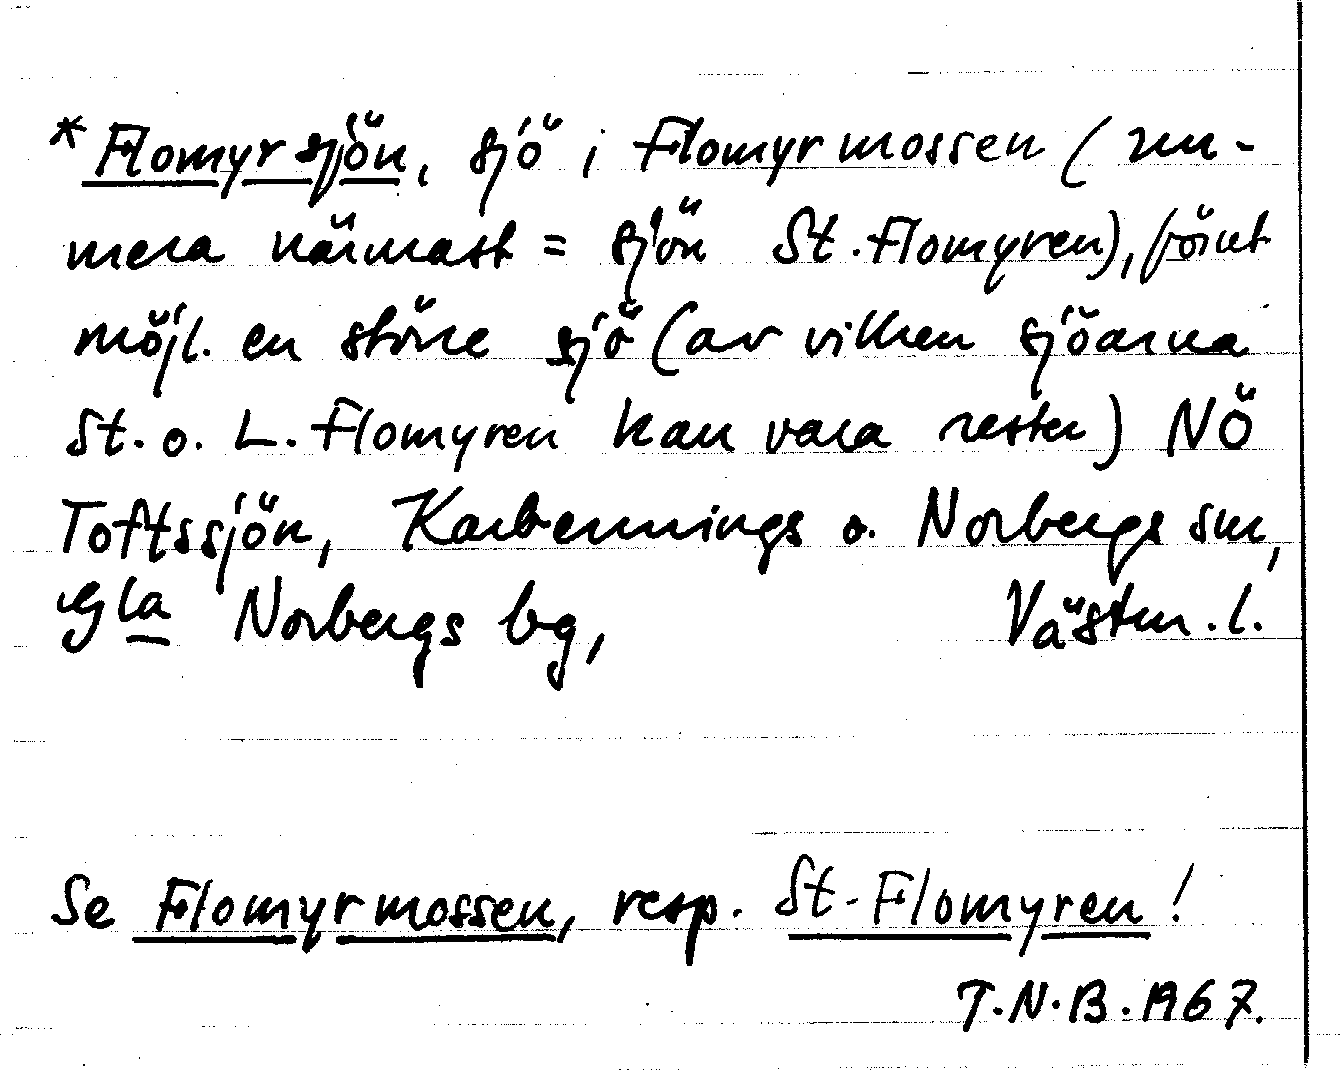 *Flomyrsjön, sjö i Flomyrmossen (nu-
mera närmast = sjön St. Flomyren), förut
möjl. en större sjö (av vilken sjöarna
St. o. L. Flomyren kan vara rester) NÖ
Toftssjön, Karbennings o. Norbergs snr,
Gla Norbergs bg, Västm. l.
Se Flomyrmossen, resp. St. Flomyren!
T.N.B. 1967.